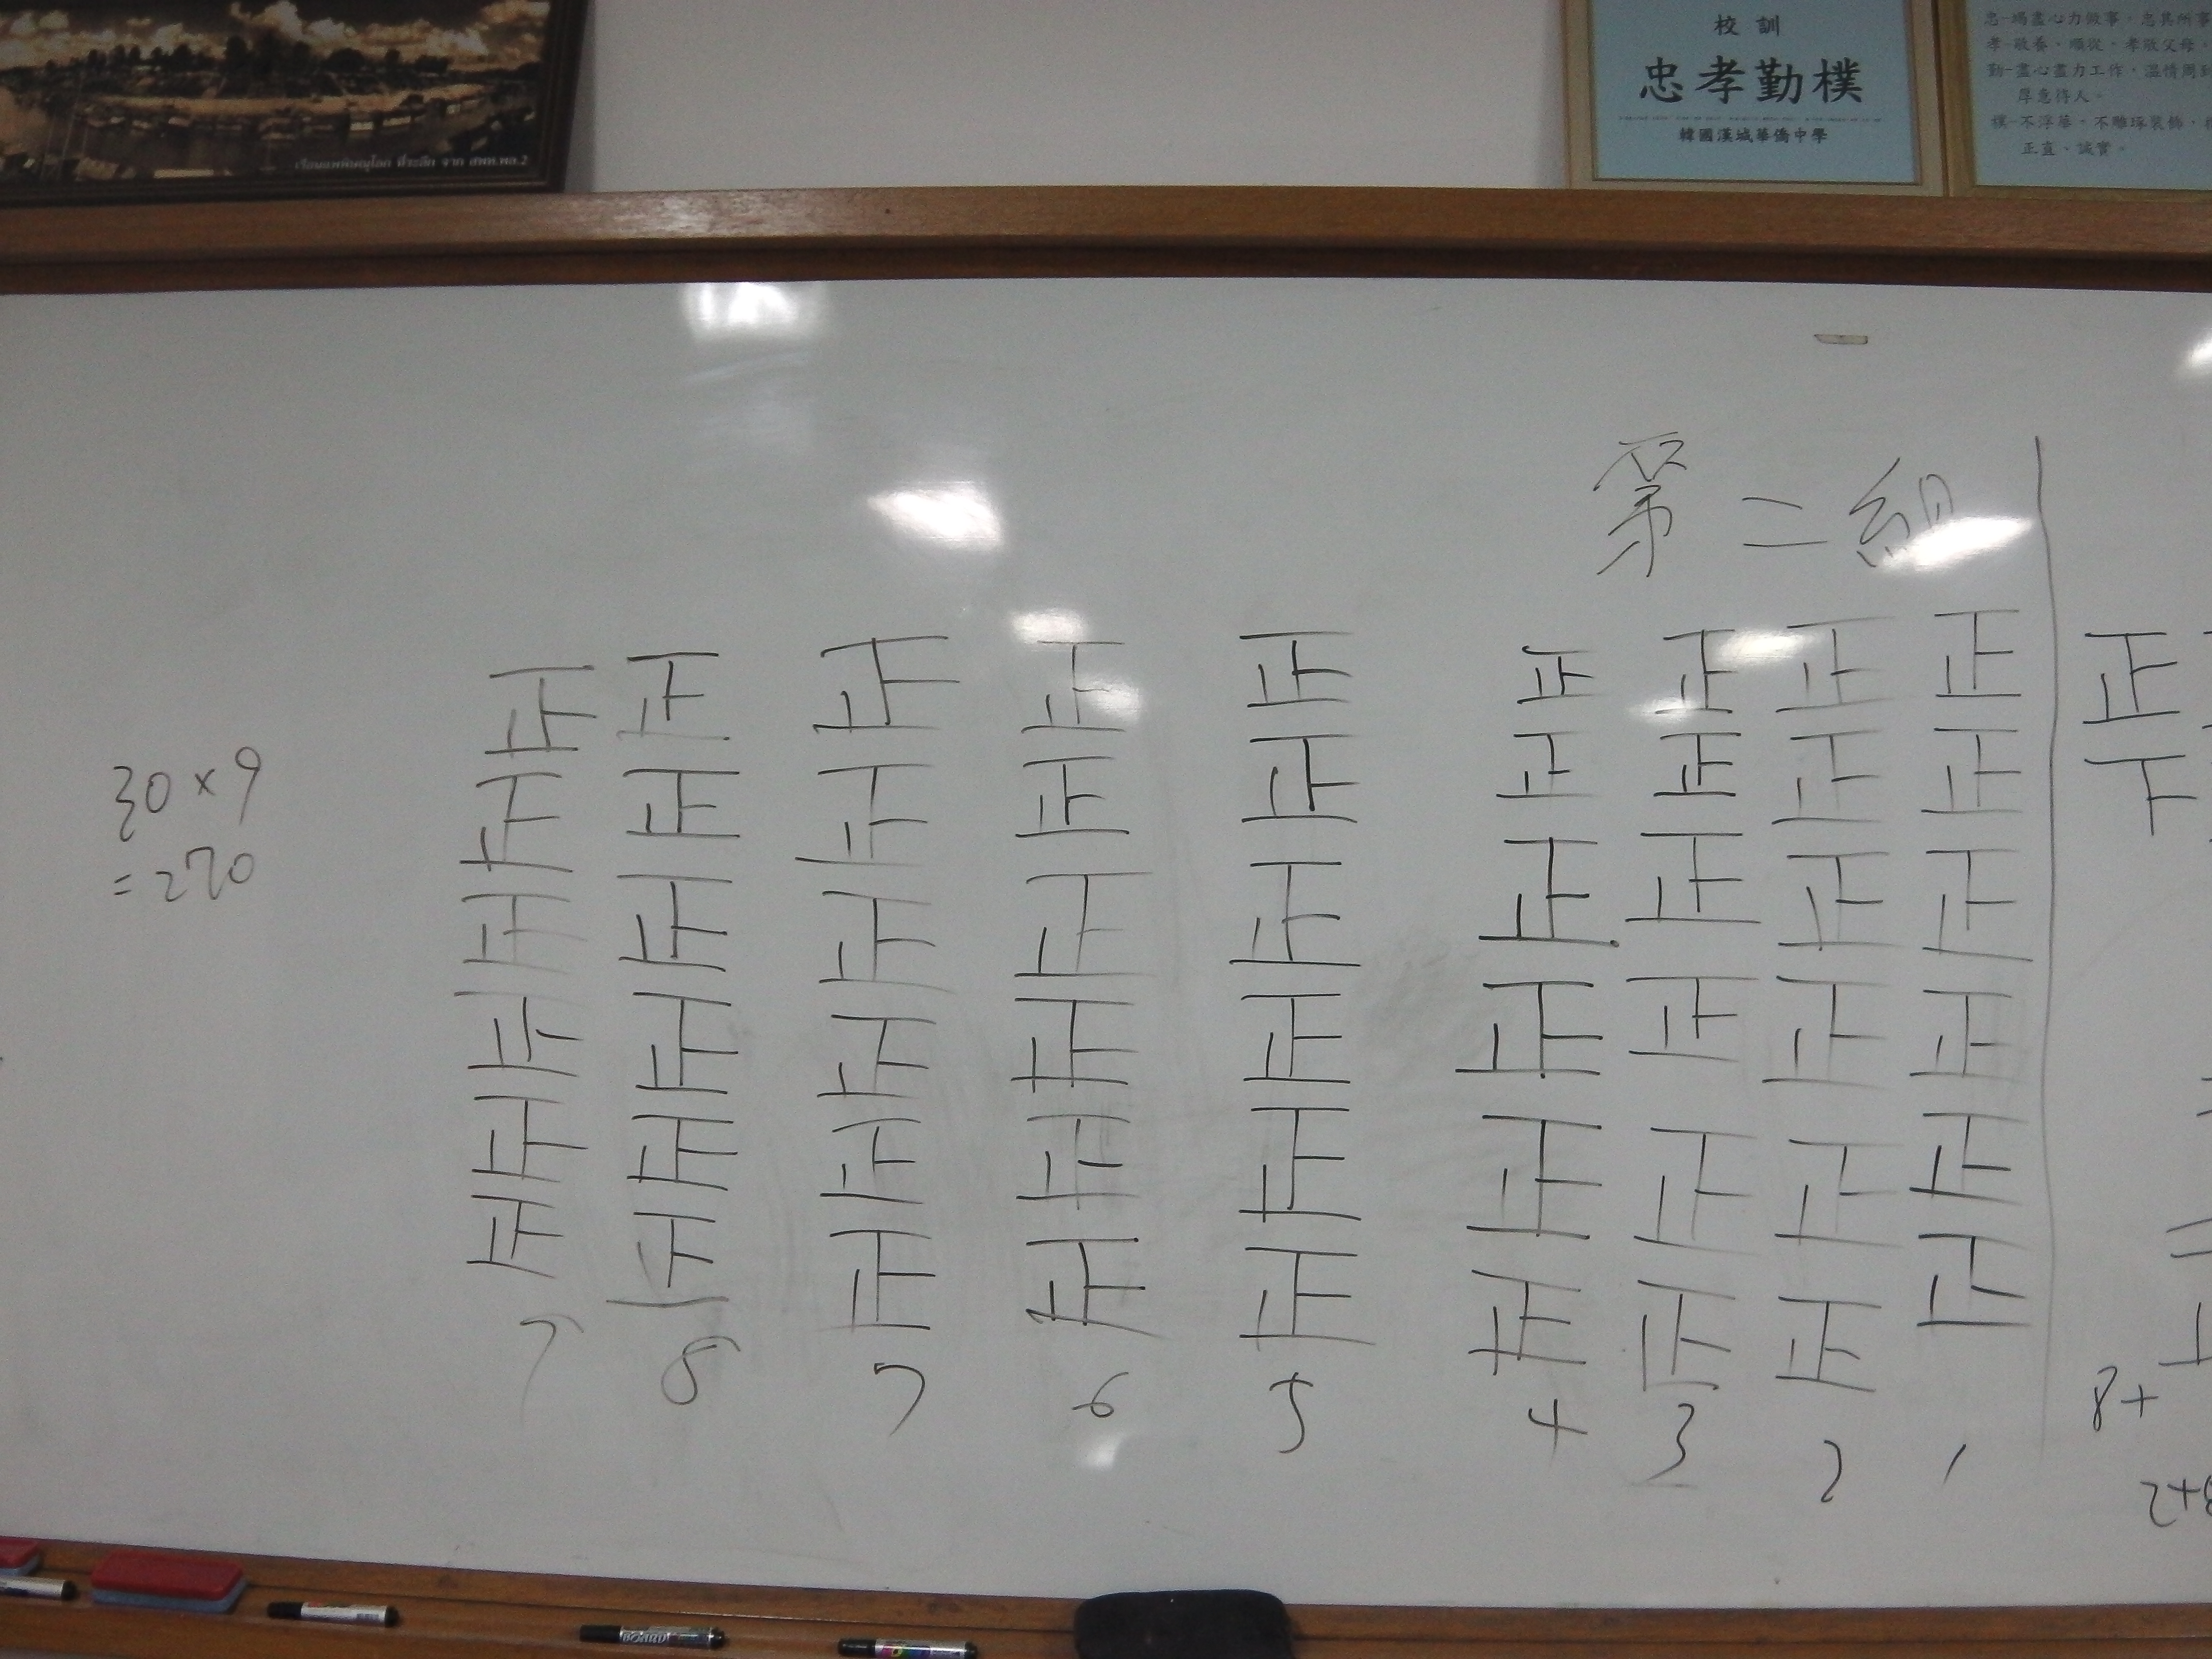 校訓
忠孝勤樸
韓國漢城華僑中學
忠-竭盡心力做事,忠其所事
孝-敬養、順從,孝敬父母。
勤-盡心盡力工作,溫情周到
厚意待人。
樸-不浮華。不雕琢裝飾,
正直、誠實。
第二組
正 正 正 正 正 正 正 正 正 正
正 正 正 正 正 正 正 正 正
正 正 正 正 正 正 正 正 正
正 正 正 正 正 正 正 正 正
正 正 正 正 正 正 正 正 正
正 正 正 正 正 正 正 正 正
7 8 7 6 5 4 3 2 1
30×9
=270
8+
2+8